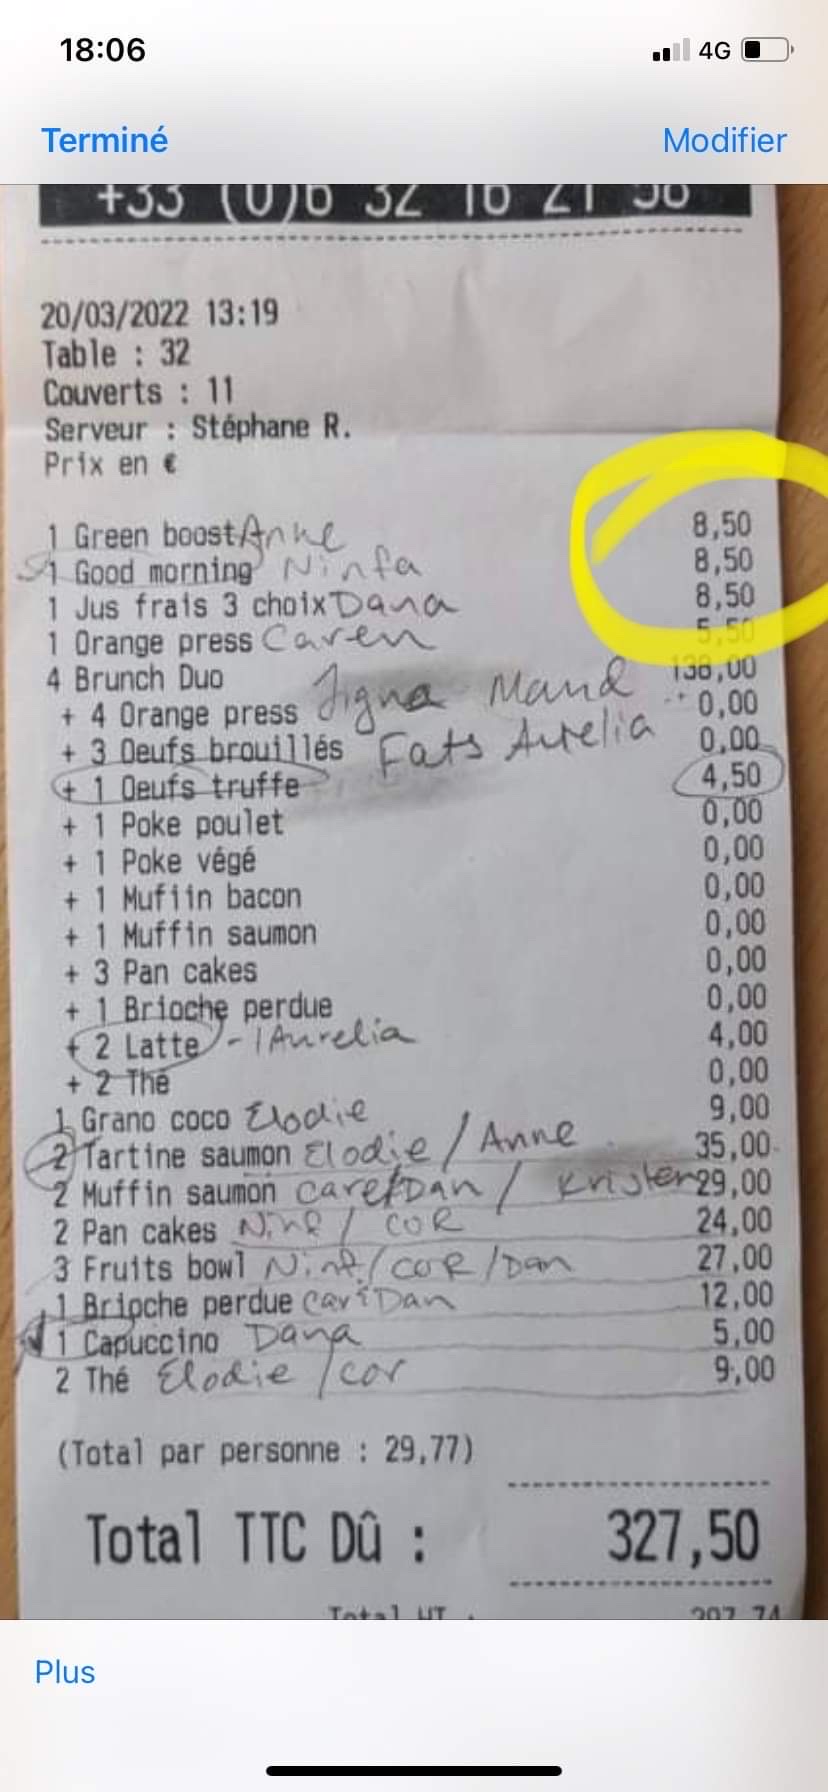 18:06 4G
Terminé Modifier
+33 (0)6 32 16 21
20/03/2022 13:19
Table : 32
Couverts : 11
Serveur : Stéphane R.
Prix en €
1 Green boost Anne 8,50
1 Good morning Ninfa 8,50
1 Jus frais 3 choix Dana 8,50
1 Orange press Caren 5,50
4 Brunch Duo 138,00
+ 4 Orange press Jigna Mand 0,00
+ 3 Oeufs brouillés Fats Aurelia 0,00
+ 1 Oeufs truffe 4,50
+ 1 Poke poulet 0,00
+ 1 Poke végé 0,00
+ 1 Muffin bacon 0,00
+ 1 Muffin saumon 0,00
+ 3 Pan cakes 0,00
+ 1 Brioche perdue 0,00
+ 2 Latte - 1 Aurelia 4,00
+ 2 Thé 0,00
1 Grano coco Elodie 9,00
2 Tartine saumon Elodie / Anne 35,00
2 Muffin saumon Care/Dan / Kristen 29,00
2 Pan cakes Ninf / COR 24,00
3 Fruits bowl Ninf / COR / Dan 27,00
1 Brioche perdue Car & Dan 12,00
1 Capuccino Dana 5,00
2 Thé Elodie / cor 9,00
(Total par personne : 29,77)
Total TTC Dû : 327,50
Total HT : 297,74
Plus